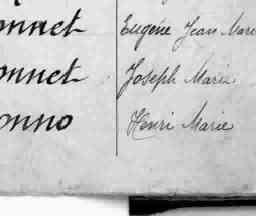 onnet Eugène Jean Marie
onnet Joseph Marie
onno Henri Marie